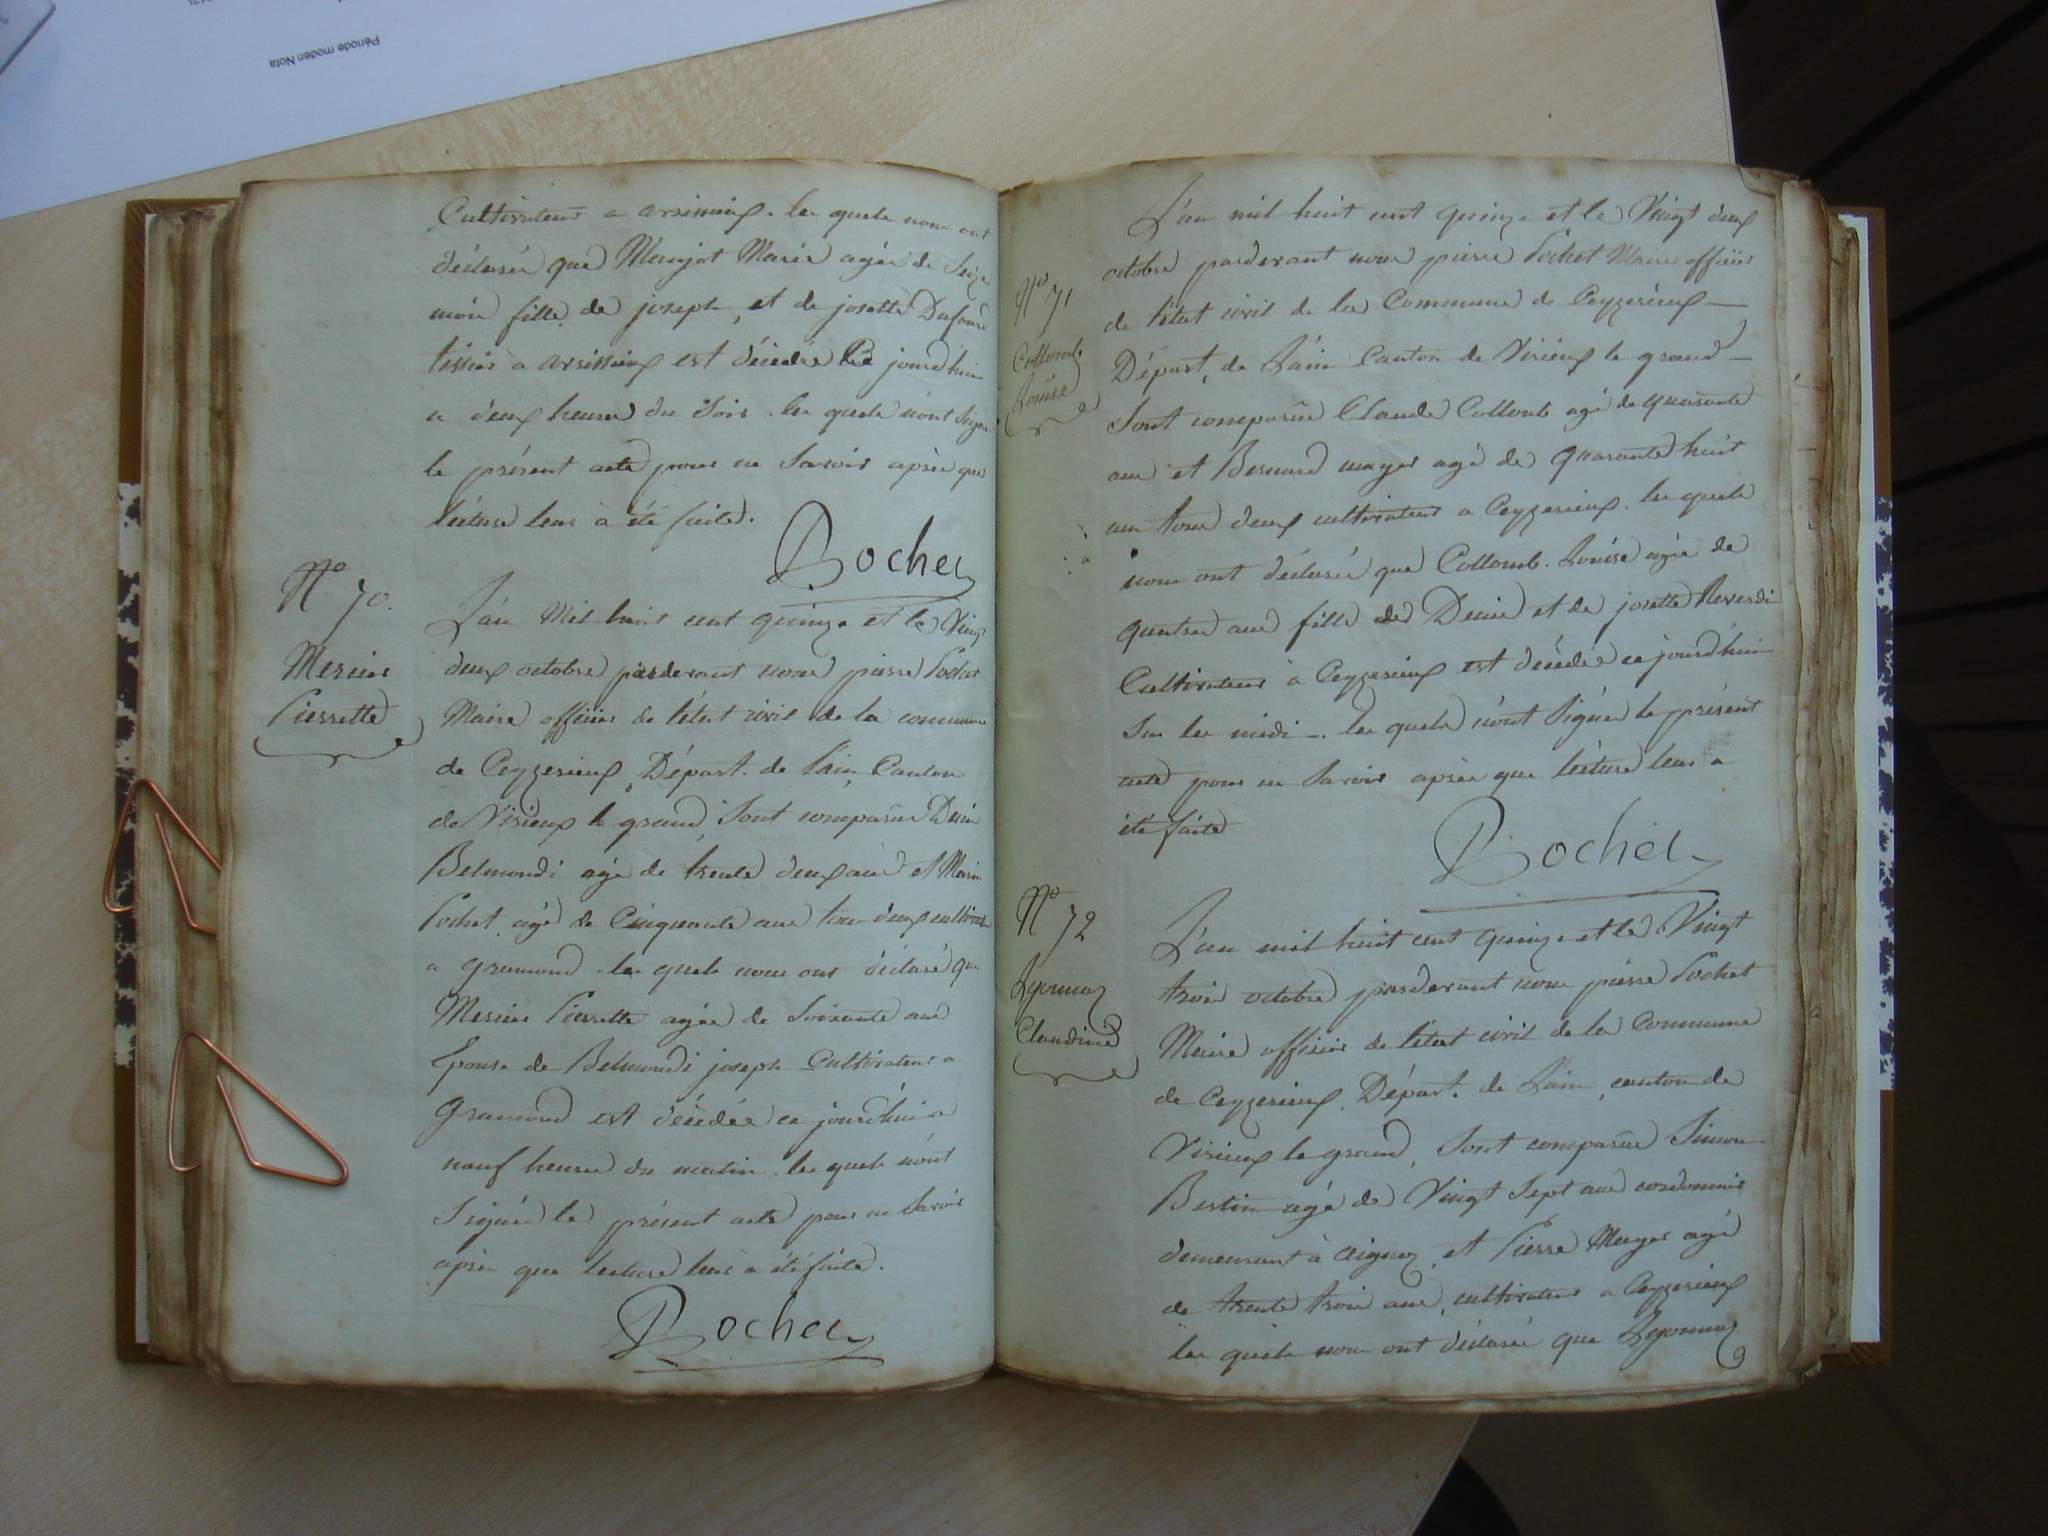 Période moden Nota
Cultivateur a arsinieux. les quels nous ont
déclarés que Maujot Marie agée de Seize
mois fille de joseph, et de josette Dufour
tissier à arsissieux est décédée Ce jourdhui
a deux heures du Soir. les quels n'ont Signé
le présent acte pour ne Savoir après que
lecture leur à été faite.
Pochet
N° 70.
Mercier
Pierrette
L'an Mil huit cent quinze et le Vingt
deux octobre pardevant nous pierre Pochet
Maire officier de l'état civil de la commune
de Ceyzerieux Départ. de l'ain Canton
de Virieux le grand, Sont comparus Denis
Belmondi agé de trente deux ans et Marin
Pochet agé de Cinquante ans tous deux cultivat
a gramond. les quels nous ont déclaré que
Mercier Pierrette agée de Soixante ans
Epouse de Belmondi joseph Cultivateur a
Gramond est décédée ce jourdhui a
neuf heures du matin. les quels n'ont
Signés le présent acte pour ne Savoir
après que lecture leur a été faite.
Pochet
N° 71
Collomb
Louise
L'an mil huit cent quinze et le Vingt deux
octobre pardevant nous pierre Pochet Maire officier
de l'état civil de la Commune de Ceyzerieux
Départ. de L'ain Canton de Virieux le grand
Sont comparus Claude Collomb agé de quarante
ans et Bernard mayer agé de quarante huit
ans tous deux cultivateurs a Ceyzerieux. les quels
nous ont déclarés que Collomb. Louise agée de
quatre ans fille de Denis et de josette Reverdi
Cultivateur à Ceyzerieux est décédée ce jourd'hui
Sur les midi. les quels n'ont Signés le présent
acte pour ne Savoir après que lecture leur a
été faite
Pochet
N° 72
Lyonnaz
Claudine
L'an mil huit cent quinze et le Vingt
trois octobre pardevant nous pierre Pochet
Maire officier de l'état civil de la Commune
de Ceyzerieux. Départ. de L'ain, canton de
Virieux le grand, Sont comparus Simon
Bertin agé de Vingt Sept ans cordonnier
demeurant à aignoz, et Pierre Mayer agé
de trente trois ans, cultivateur a Ceyzerieux
les quels nous ont déclarés que Lyonnaz